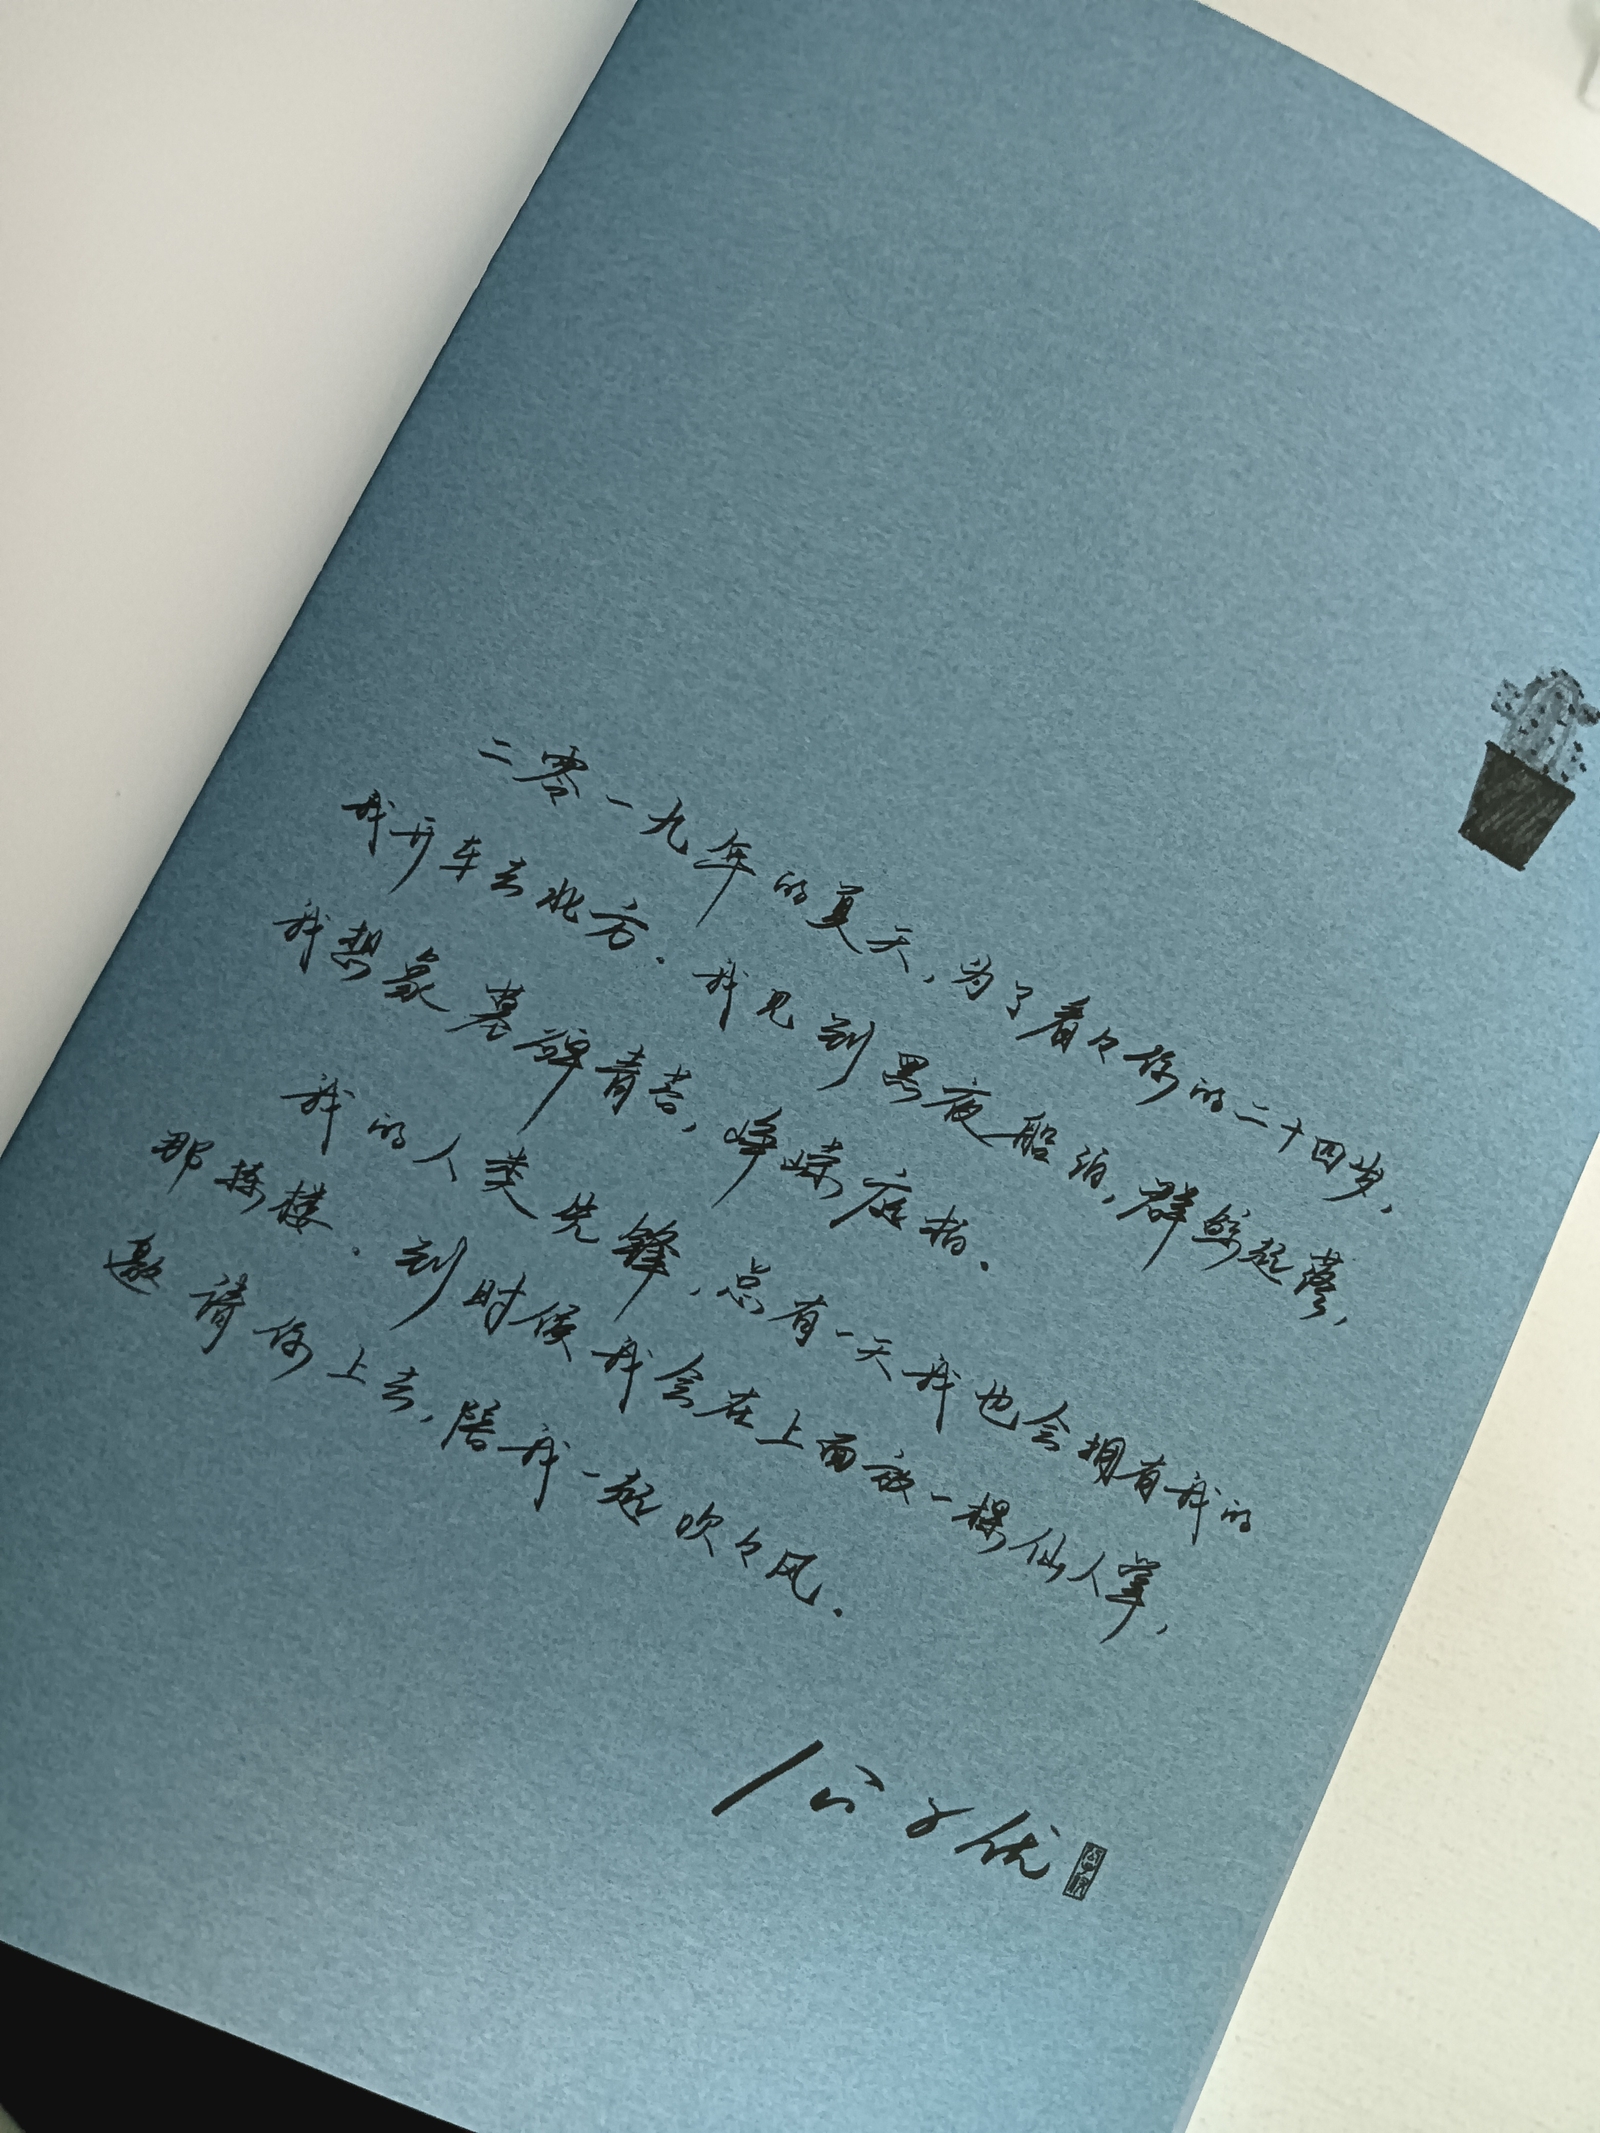 二零一九年的夏天，为了看々你的二十四岁，
我开车去北方．我见到黑夜船泊，群鲸起落，
我想象墓碑青苔，峥嵘庭柏．
我的人类先锋，总有一天我也会拥有我的
那栋楼．到时候我会在上面放一棵仙人掌，
邀请你上去，陪我一起吹々风．
公子优